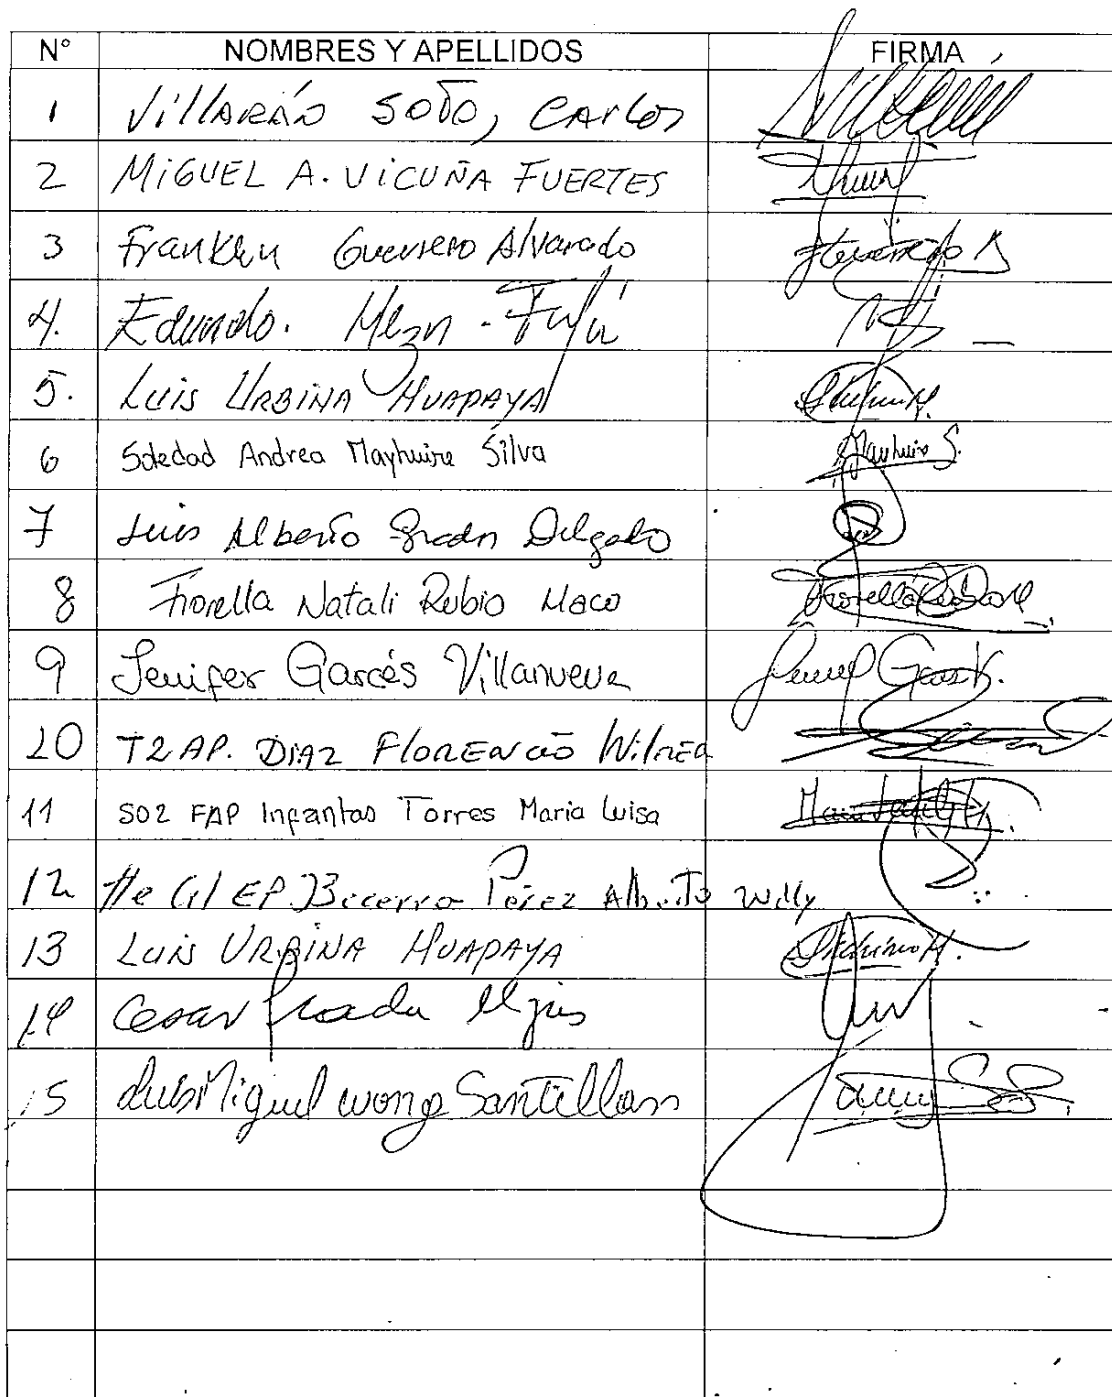 N° NOMBRES Y APELLIDOS FIRMA
1 VillaRÁN SOTO, CARlos
2 MIGUEL A. VICUÑA FUERTES
3 Franklin Guerrero Alvarado
4. Edmundo.
5. LUIS URBINA HUAPAYA
6 Soledad Andrea Mayhuire Silva Mayhuire S.
7 Luis Alberto Delgado
8 Fiorella Natali Rubio Maco
9 Jenifer Garcés Villanueva
10 T2 AP. DIAZ FLORENCIO
11 SO2 FAP Infantas Torres Maria Luisa
12 EP. Becerra Pérez Alberto Willy
13 LUIS URBINA HUAPAYA
14 Cesar
15 Luis Miguel Wong Santillan